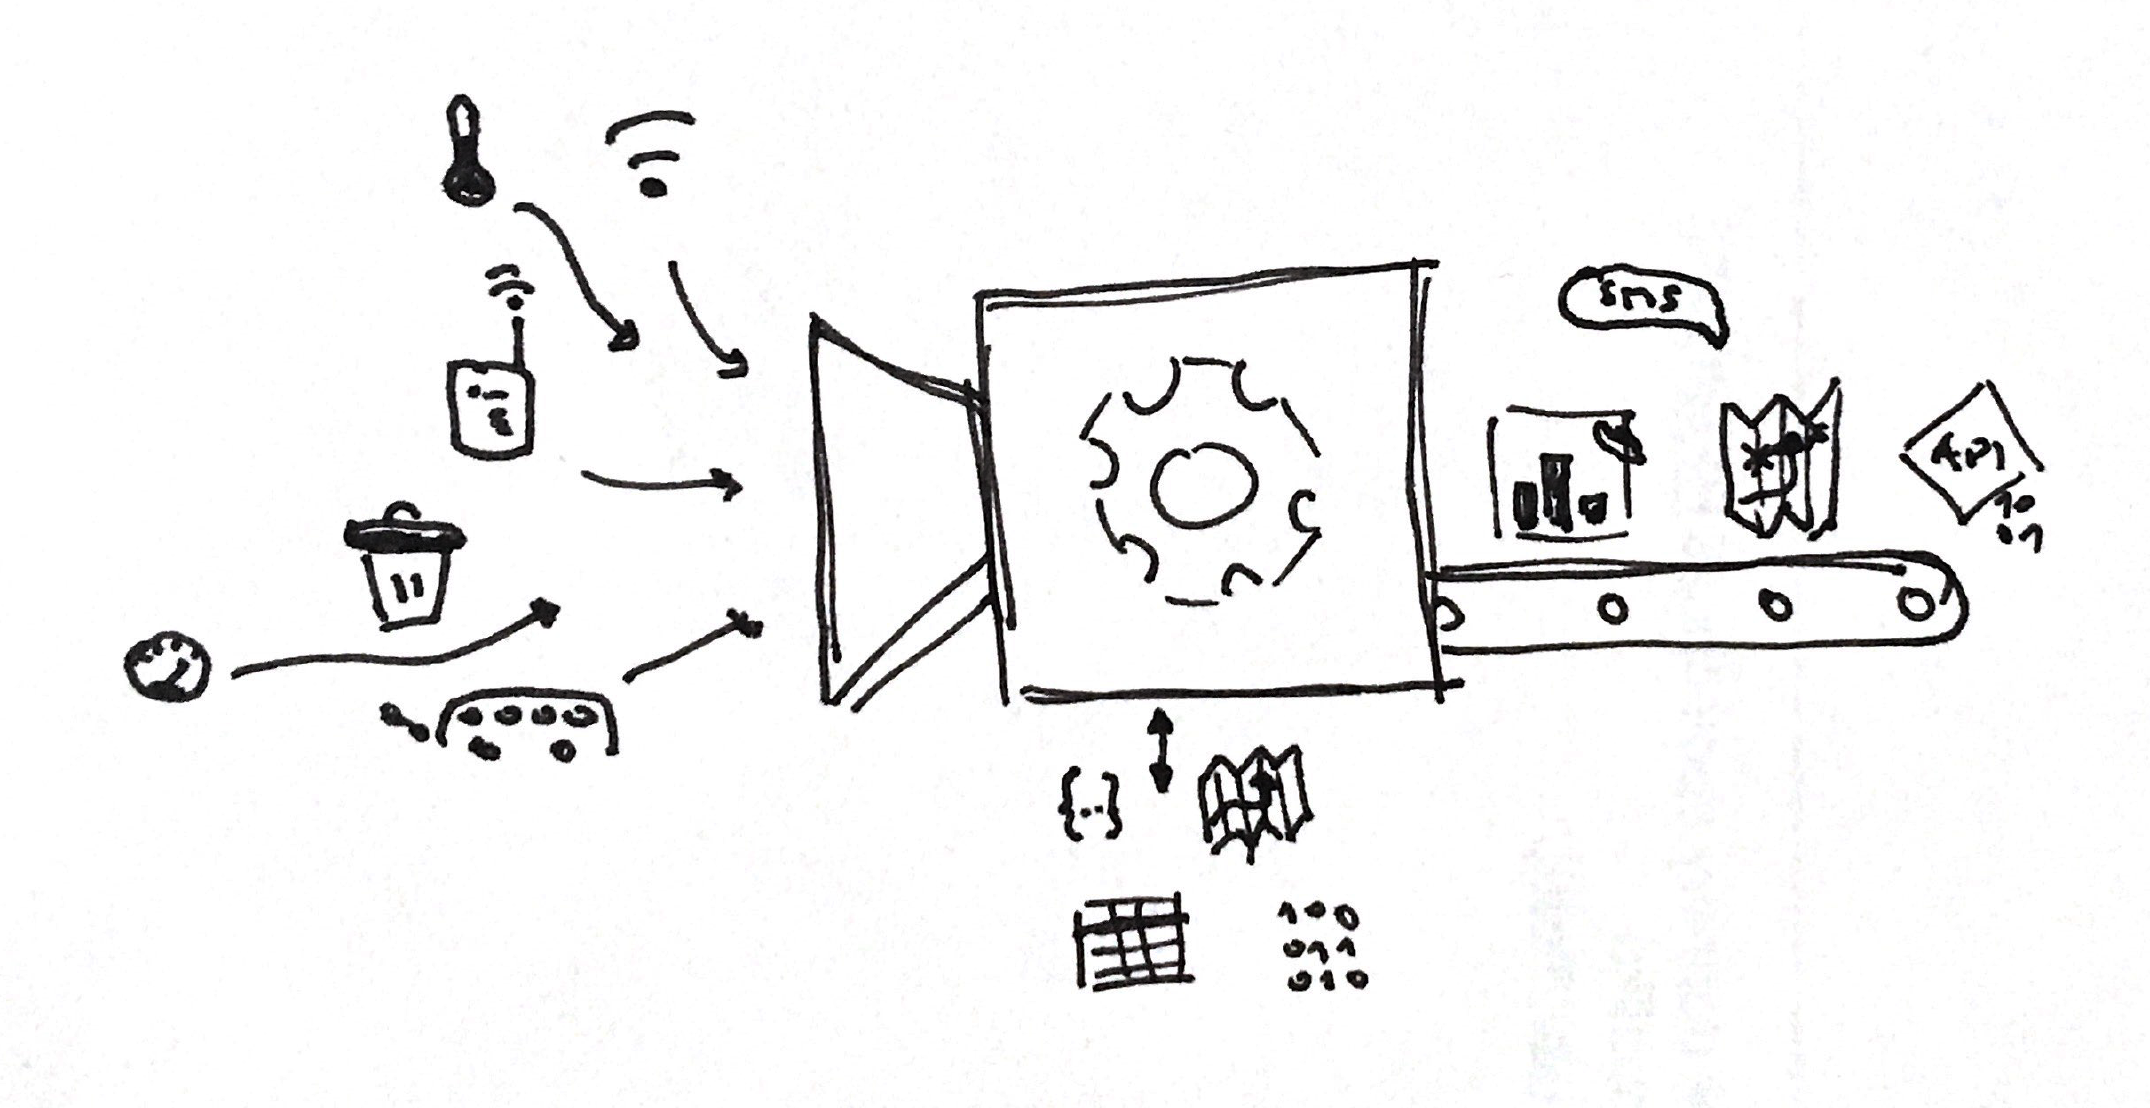 sms
API
10
01
{..}
100
011
010